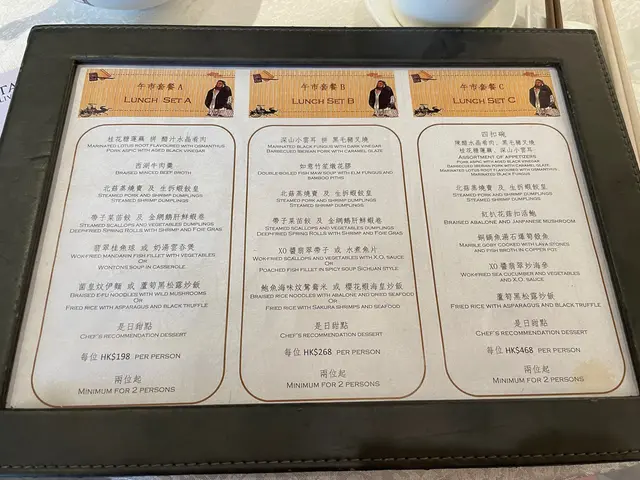 午市套餐 A
LUNCH SET A
桂花糖蓮藕 拼 醋汁水晶肴肉
MARINATED LOTUS ROOT FLAVOURED WITH OSMANTHUS
PORK ASPIC WITH AGED BLACK VINEGAR
西湖牛肉羹
BRAISED MINCED BEEF BROTH
北菇蒸燒賣 及 生拆蝦餃皇
STEAMED PORK AND SHRIMP DUMPLINGS
STEAMED SHRIMP DUMPLINGS
帶子菜苗餃 及 金網鵝肝鮮蝦卷
STEAMED SCALLOPS AND VEGETABLES DUMPLINGS
DEEP-FRIED SPRING ROLLS WITH SHRIMP AND FOIE GRAS
翡翠桂魚球 或 奶湯雲吞煲
WOK-FRIED MANDARIN FISH FILLET WITH VEGETABLES
OR
WONTONS SOUP IN CASSEROLE
菌皇炆伊麵 或 蘆筍黑松露炒飯
BRAISED E-FU NOODLES WITH WILD MUSHROOMS
OR
FRIED RICE WITH ASPARAGUS AND BLACK TRUFFLE
是日甜點
CHEF'S RECOMMENDATION DESSERT
每位 HK$198 PER PERSON
兩位起
MINIMUM FOR 2 PERSONS
午市套餐 B
LUNCH SET B
深山小雲耳 拼 黑毛豬叉燒
MARINATED BLACK FUNGUS WITH DARK VINEGAR
BARBECUED IBERIAN PORK WITH CARAMEL GLAZE
如意竹笙燉花膠
DOUBLE-BOILED FISH MAW SOUP WITH ELM FUNGUS AND
BAMBOO PITHS
北菇蒸燒賣 及 生拆蝦餃皇
STEAMED PORK AND SHRIMP DUMPLINGS
STEAMED SHRIMP DUMPLINGS
帶子菜苗餃 及 金網鵝肝鮮蝦卷
STEAMED SCALLOPS AND VEGETABLES DUMPLINGS
DEEP-FRIED SPRING ROLLS WITH SHRIMP AND FOIE GRAS
XO 醬翡翠帶子 或 水煮魚片
WOK-FRIED SCALLOPS AND VEGETABLES WITH X.O. SAUCE
OR
POACHED FISH FILLET IN SPICY SOUP SICHUAN STYLE
鮑魚海味炆鴛鴦米 或 櫻花蝦海皇炒飯
BRAISED RICE NOODLES WITH ABALONE AND DRIED SEAFOOD
OR
FRIED RICE WITH SAKURA SHRIMPS AND SEAFOOD
是日甜點
CHEF'S RECOMMENDATION DESSERT
每位 HK$268 PER PERSON
兩位起
MINIMUM FOR 2 PERSONS
午市套餐 C
LUNCH SET C
四扣碗
陳醋水晶肴肉, 黑毛豬叉燒
桂花糖蓮藕, 深山小雲耳
ASSORTMENT OF APPETIZERS
PORK ASPIC WITH AGED BLACK VINEGAR
BARBECUED IBERIAN PORK WITH CARAMEL GLAZE,
MARINATED LOTUS ROOT FLAVOURED WITH OSMANTHUS,
MARINATED BLACK FUNGUS
北菇蒸燒賣 及 生拆蝦餃皇
STEAMED PORK AND SHRIMP DUMPLINGS
STEAMED SHRIMP DUMPLINGS
紅扒花菇扣活鮑
BRAISED ABALONE AND JAPANESE MUSHROOM
銅鍋魚湯石爆筍殼魚
MARBLE GOBY COOKED WITH LAVA STONES
AND FISH BROTH IN COPPER POT
XO 醬翡翠炒海參
WOK-FRIED SEA CUCUMBER AND VEGETABLES
AND X.O. SAUCE
蘆筍黑松露炒飯
FRIED RICE WITH ASPARAGUS AND BLACK TRUFFLE
是日甜點
CHEF'S RECOMMENDATION DESSERT
每位 HK$468 PER PERSON
兩位起
MINIMUM FOR 2 PERSONS